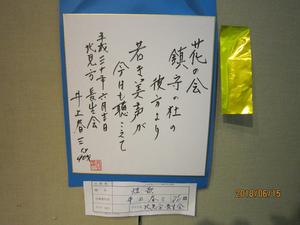 花の会
鎮守の杜の
彼方より
若き美声が
今日も聴こえて
平成三十年六月吉日
北見方 長生会
井上春三
2018/06/15